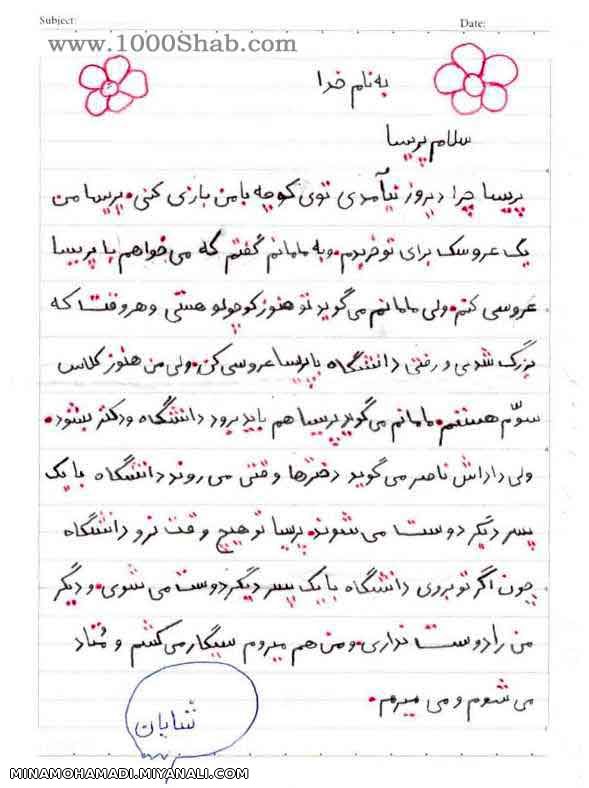 Subject:
Date:
www.1000Shab.com
به نام خدا
سلام پریسا
پریسا چرا دیروز نیآمدی توی کوچه با من بازی کنی. پریسا من
یک عروسک برای تو خریدم. و به مامانم گفتم که می خواهم با پریسا
عروسی کنم. ولی مامانم می گوید تو هنوز کوچولو هستی و هر وقت که
بزرگ شدی و رفتی دانشگاه با پریسا عروسی کن. ولی من هنوز کلاس
سوّم هستم. مامانم می گوید پریسا هم باید برود دانشگاه و دکتر بشود.
ولی داداش ناصر می گوید دخترها وقتی می روند دانشگاه با یک
پسر دیگر دوست می شوند. پریسا تو هیچ وقت نرو دانشگاه
چون اگر تو بروی دانشگاه با یک پسر دیگر دوست می شوی. و دیگر
من را دوست نداری. و من هم میروم سیگار می کشم و مُتاد
می شوم و می میرم.
شایان
MINAMOHAMADI.MIYANALI.COM